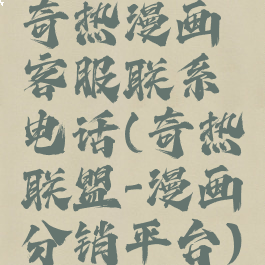 奇热漫画
客服联系
电话(奇热
联盟-漫画
分销平台)